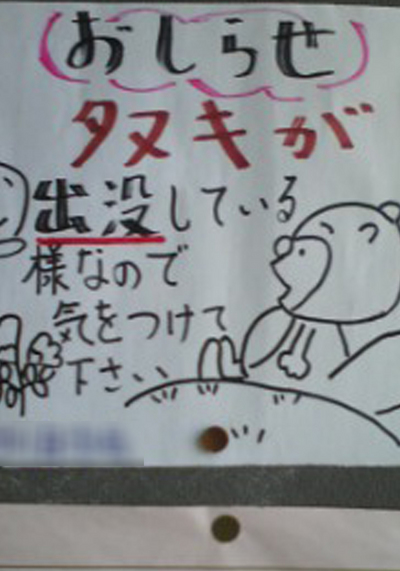 おしらせ
タヌキが
出没している
様なので
気をつけて
下さい